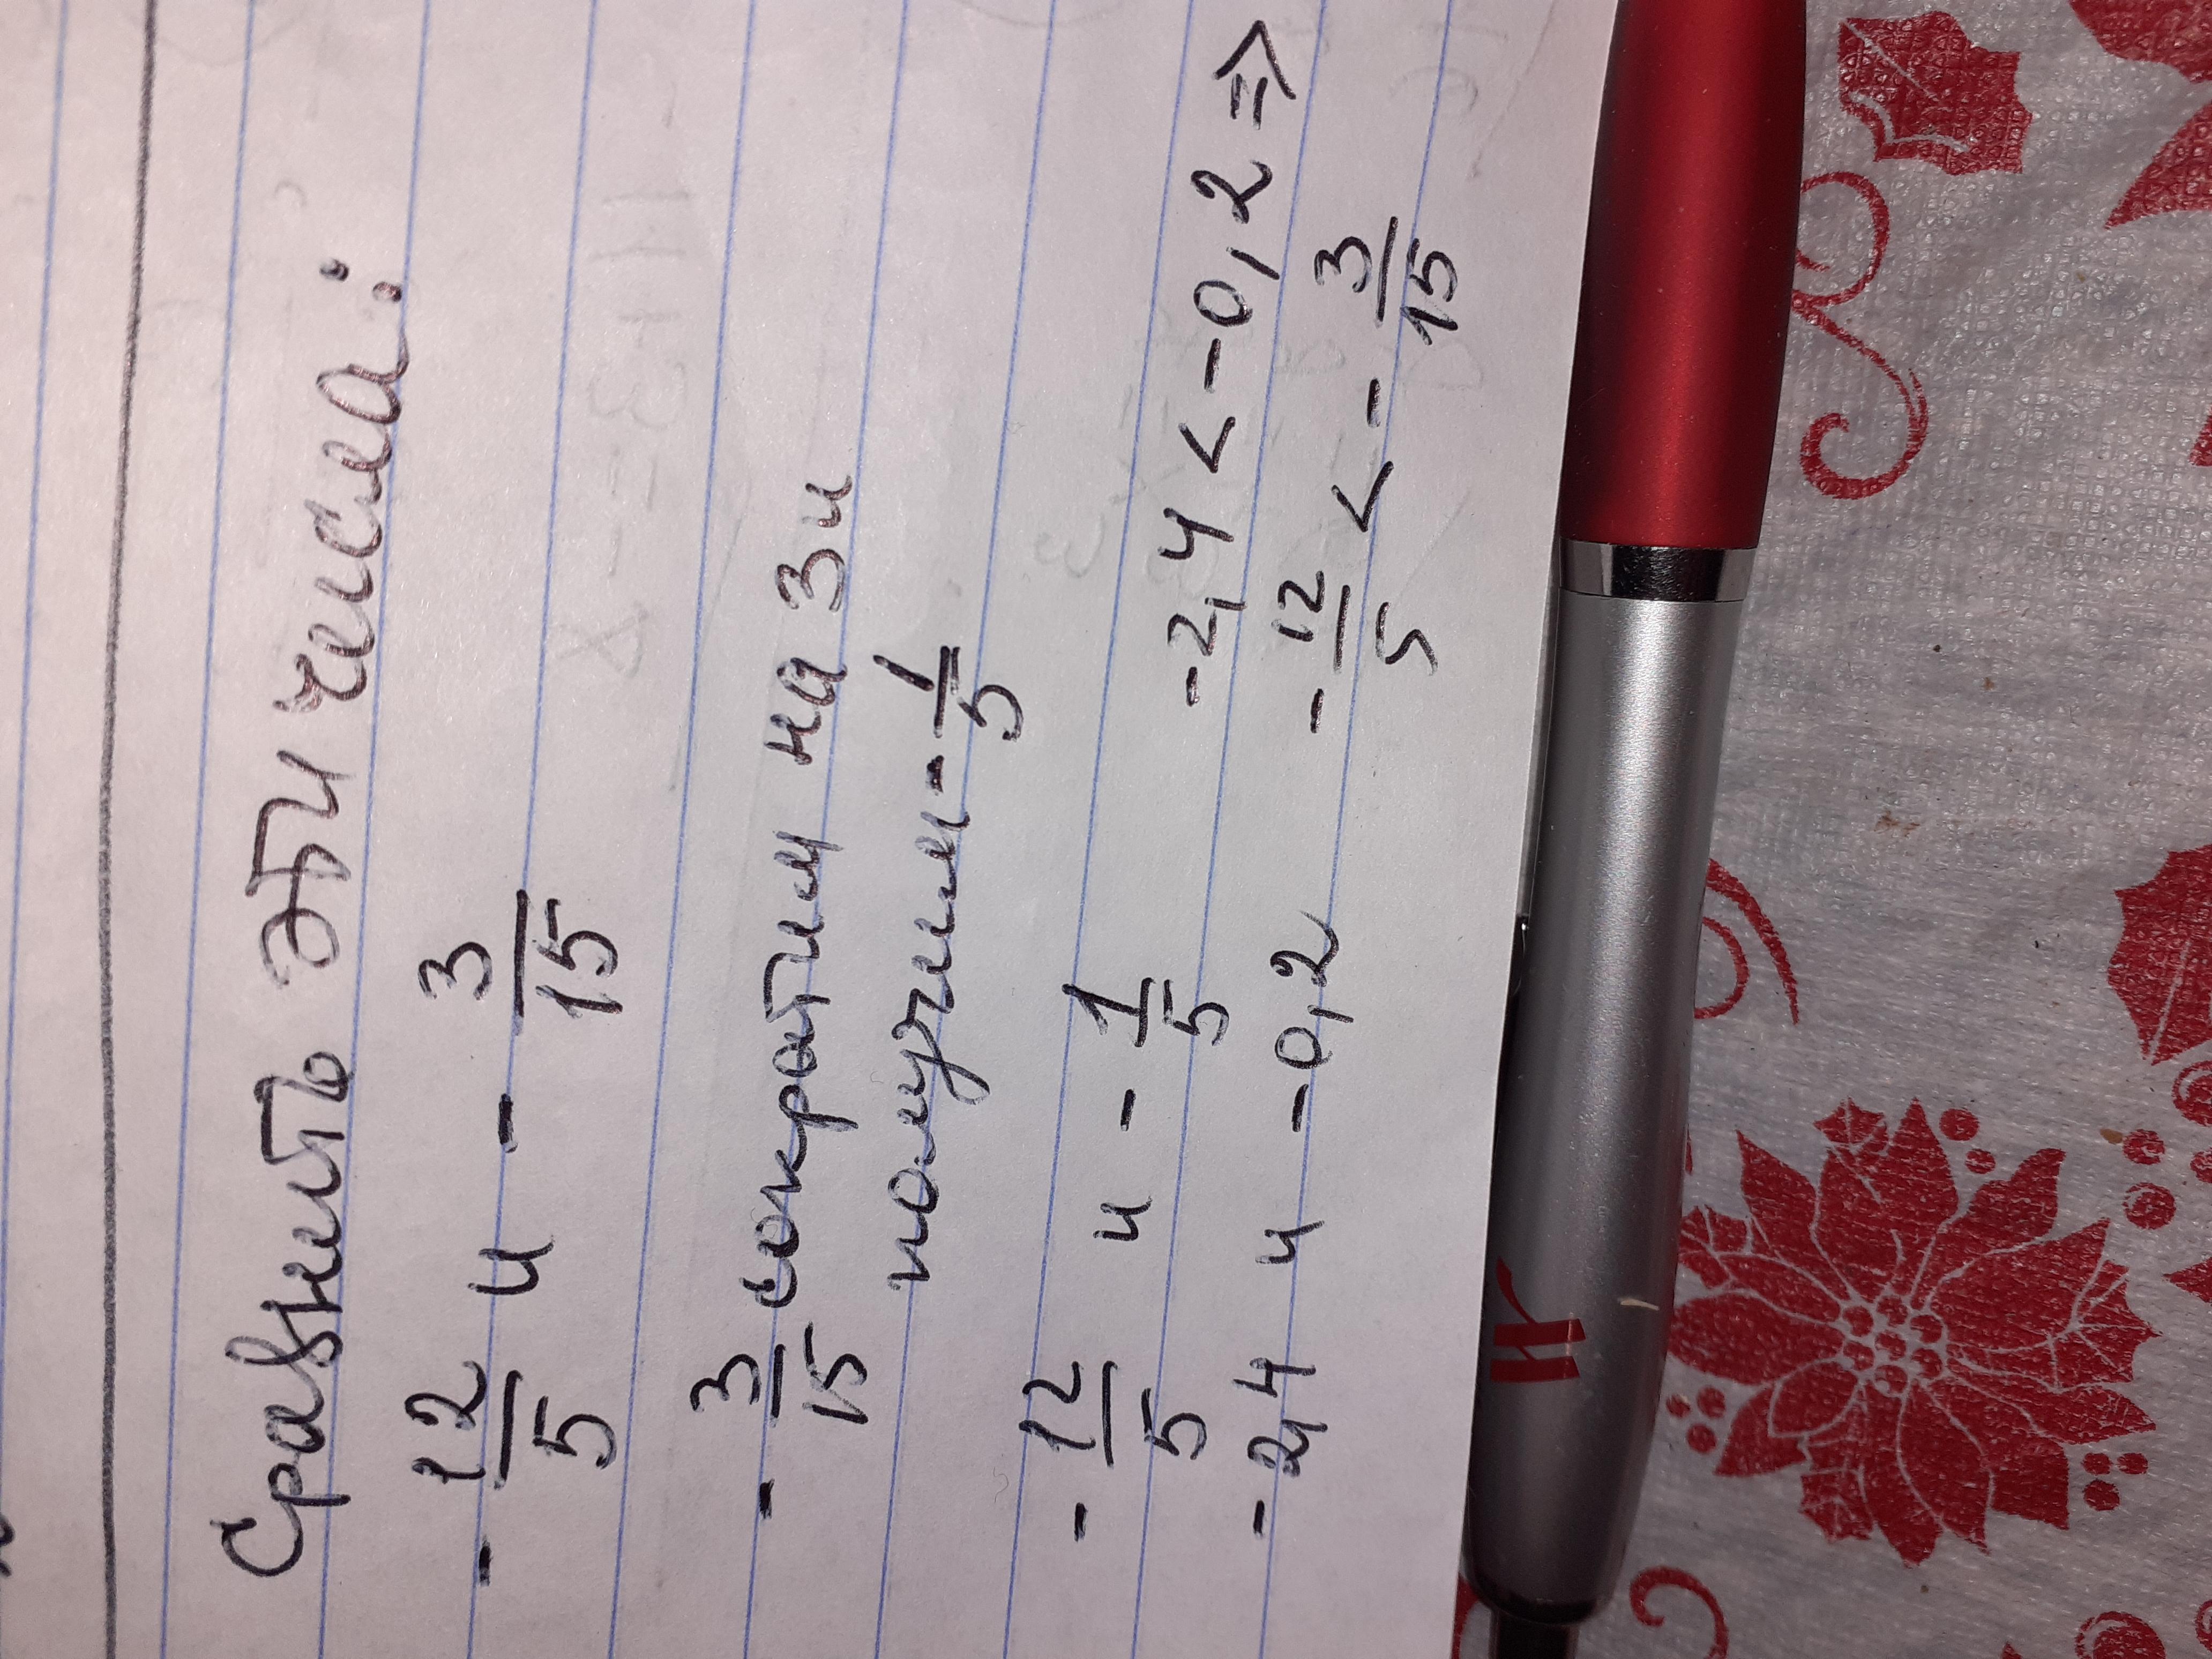 Сравнить эти числа:
- 12/5 и - 3/15
- 3/15 сократим на 3 и
получим - 1/5
- 12/5 и - 1/5
- 2,4 и - 0,2
- 2,4 < - 0,2 =>
- 12/5 < - 3/15